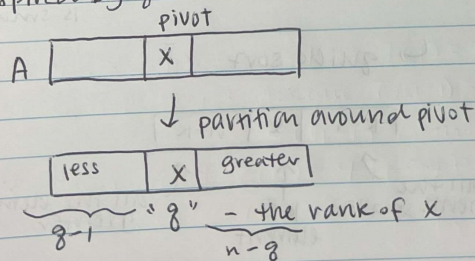 pivot
A x
↓ partition around pivot
less x greater
g-1 "g" - the rank of x
n-g